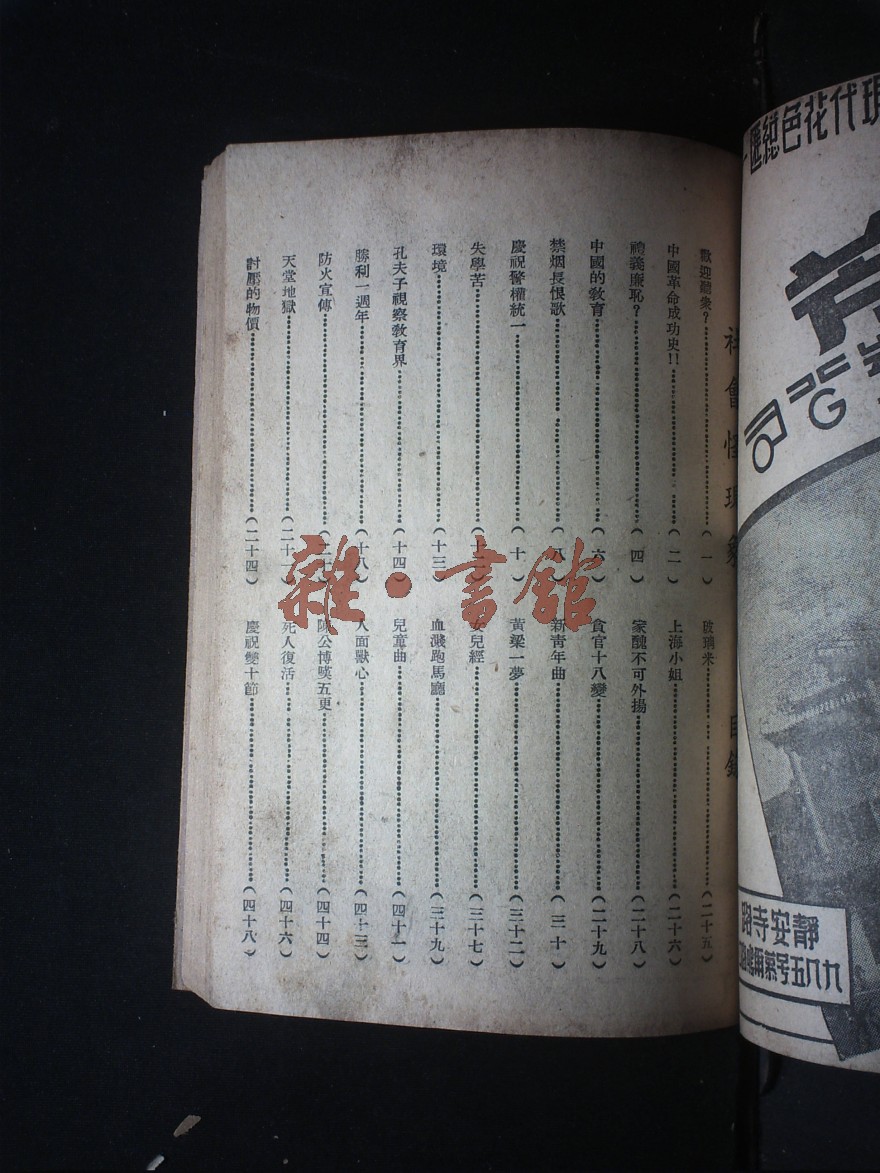 社會怪現象 目錄
歡迎聽衆?………(一)
中國革命成功史!!………(二)
禮義廉恥?………(四)
中國的敎育………(六)
禁烟長恨歌………(八)
慶祝警權統一………(十)
失學苦………(十二)
環境………(十三)
孔夫子視察敎育界………(十四)
勝利一週年………(十八)
防火宣傳
天堂地獄
討壓的物價………(二十四)
玻璃米………(二十五)
上海小姐………(二十六)
家醜不可外揚………(二十八)
貪官十八變………(二十九)
新靑年曲………(三十)
黃粱一夢………(三十二)
女兒經………(三十七)
血濺跑馬廳………(三十九)
兒童曲………(四十一)
人面獸心………(四十三)
陳公博嘆五更………(四十四)
死人復活………(四十六)
慶祝雙十節………(四十八)
雜·書館
現代花色總匯
靜安寺路